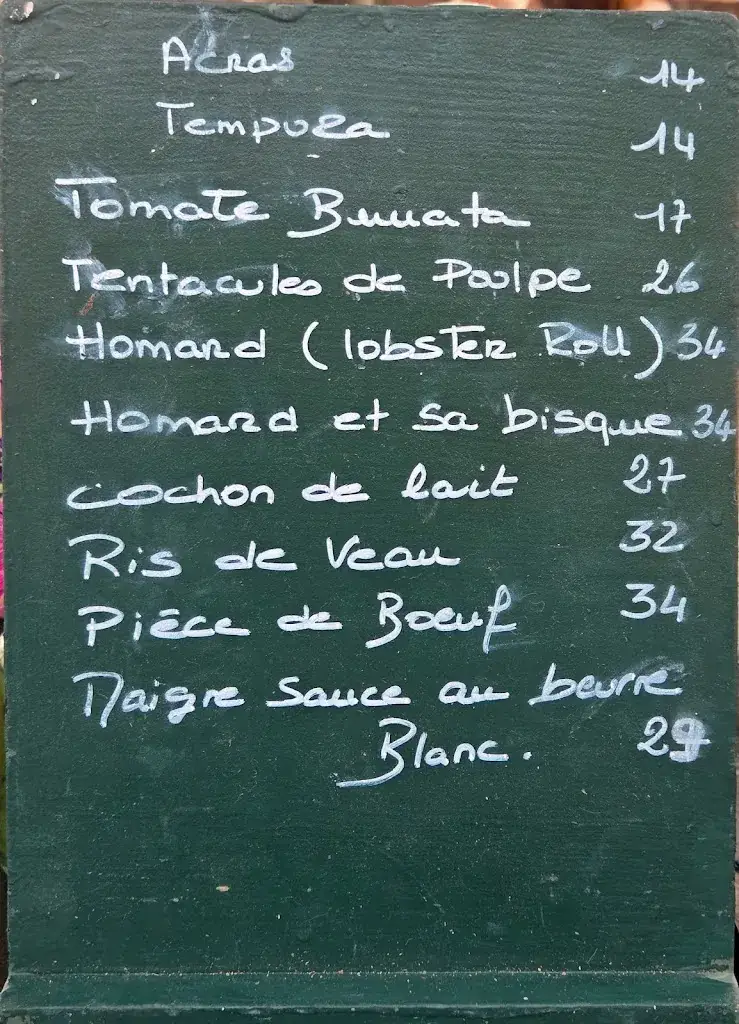 Acras 14
Tempura 14
Tomate Burrata 17
Tentacules de Poulpe 26
Homard (lobster Roll) 34
Homard et sa bisque 34
Cochon de lait 27
Ris de Veau 32
Pièce de Boeuf 34
Maigre Sauce au beurre
Blanc. 29